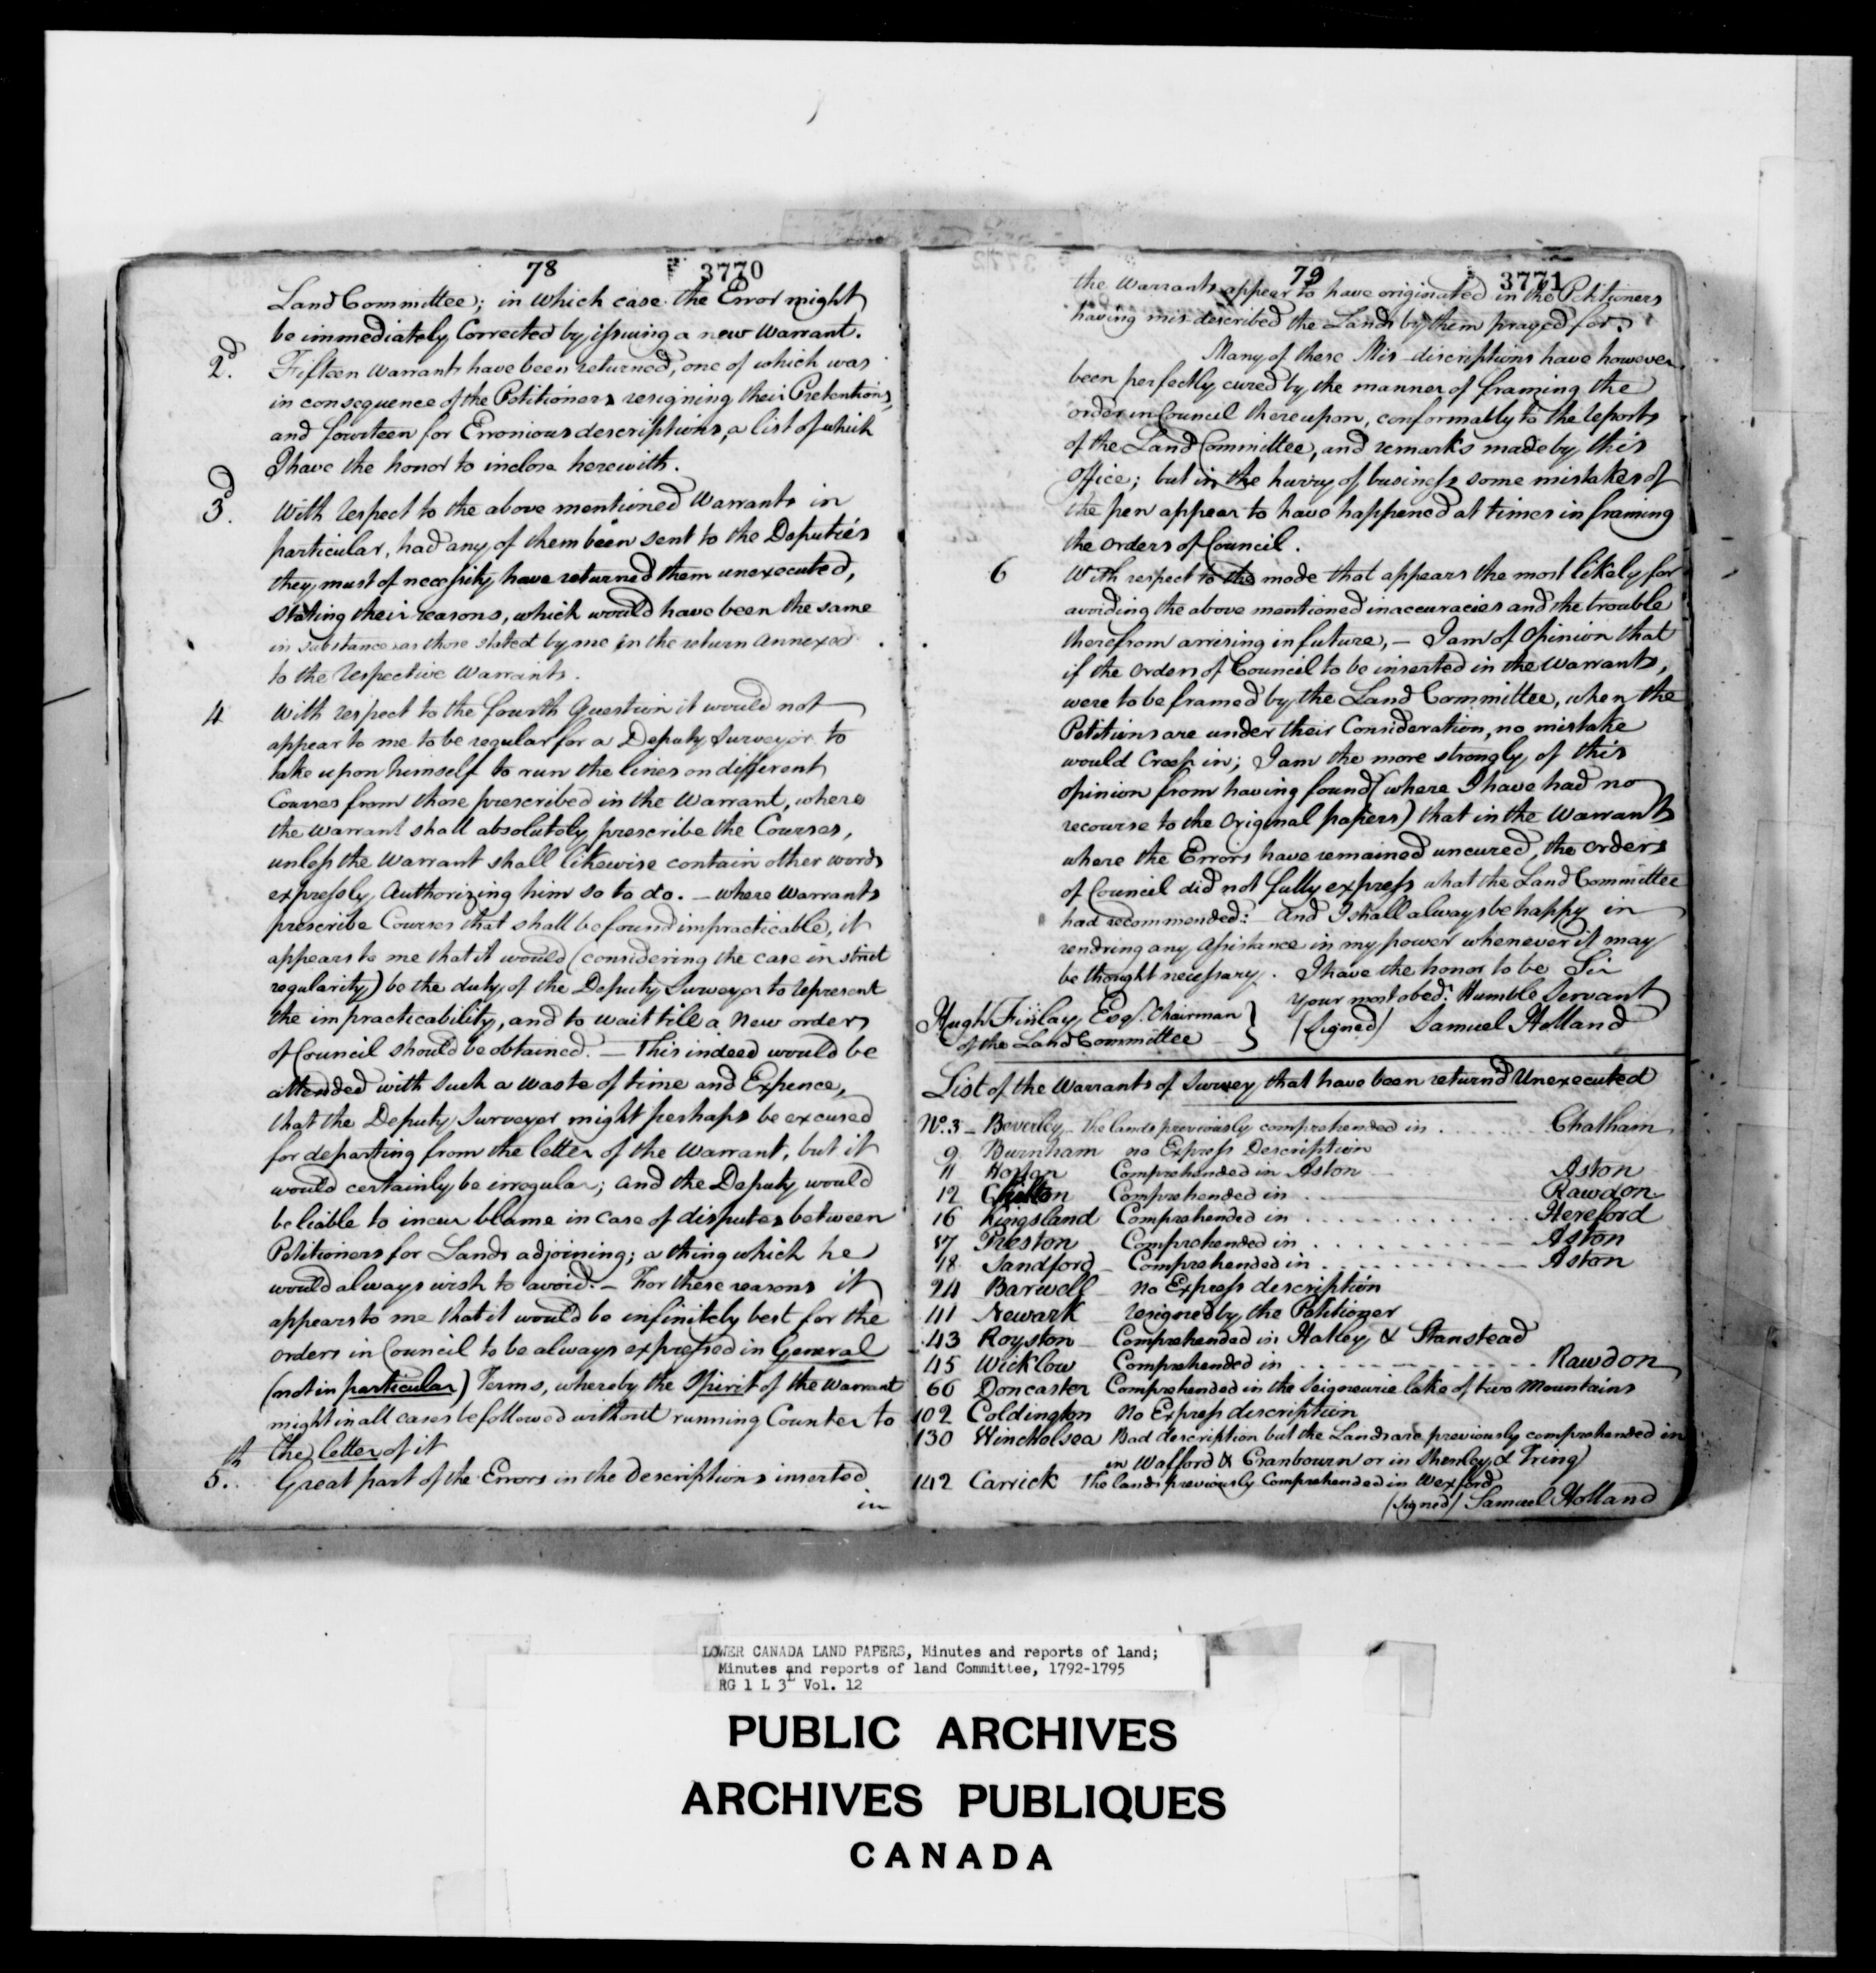 78 3770
Land Committee; in which case the Error might
be immediately Corrected by issuing a new Warrant.
2d. Fifteen Warrants have been returned, one of which was
in consequence of the Petitioners resigning their Pretentions,
and fourteen for Erronious descriptions, a list of which
I have the honor to inclose herewith.
3d. With respect to the above mentioned Warrants in
particular, had any of them been sent to the Deputies
they must of necessity have returned them unexecuted,
stating their reasons, which would have been the same
in substance as those stated by me in the return Annexed
to the respective Warrants.
4 With respect to the fourth Question it would not
appear to me to be regular for a Deputy Surveyor to
take upon himself to run the lines on different
Courses from those prescribed in the Warrant, where
the Warrant shall absolutely prescribe the Courses,
unless the Warrant shall likewise contain other words
expressly Authorizing him so to do. — where Warrants
prescribe Courses that shall be found impracticable, it
appears to me that it would (considering the case in strict
regularity) be the duty of the Deputy Surveyor to represent
the impracticability, and to wait till a New order
of Council should be obtained. — This indeed would be
attended with such a waste of time and Expence,
that the Deputy Surveyor might perhaps be excused
for departing from the letter of the Warrant, but it
would certainly be irregular; and the Deputy would
be liable to incur blame in case of disputes between
Petitioners for Lands adjoining; a thing which he
would always wish to avoid. — For these reasons it
appears to me that it would be infinitely best for the
orders in Council to be always expressed in General
(not in particular) Terms, whereby the Spirit of the Warrant
might in all cases be followed without running Counter to
the letter of it
5th. Great part of the Errors in the Descriptions inserted
in
79 3771
the Warrants appear to have originated in the Petitioners
having mis described the Lands by them prayed for.
Many of these Mis-discriptions have however
been perfectly cured by the manner of framing the
order in Council thereupon, conformably to the reports
of the Land Committee, and remarks made by this
Office; but in the hurry of business some mistakes of
the pen appear to have happened at times in framing
the orders of Council.
6 With respect to the mode that appears the most likely for
avoiding the above mentioned inaccuracies and the trouble
therefrom arrising in future, — I am of Opinion that
if the orders of Council to be inserted in the Warrants,
were to be framed by the Land Committee, when the
Petitions are under their Consideration, no mistake
would Creep in; I am the more strongly of this
opinion from having found (where I have had no
recourse to the Original papers) that in the Warrants
where the Errors have remained uncured, the orders
of Council did not fully express what the Land Committee
had recommended: And I shall always be happy in
rendring any Assistance in my power whenever it may
be thought necessary. I have the honor to be Sir
Your most obed.t Humble Servant
Hugh Finlay Esqr. Chairman } (Signed) Samuel Holland
of the Land Committee
List of the Warrants of Survey that have been return'd Unexecuted
No. 3 — Beverley — the lands previously comprehended in . . . . Chatham
9 Burnham no Express Description
11 Comprehended in Aston Aston
12 Comprehended in . . . . Rawdon
16 Kingsland Comprehended in . . . . Hereford
17 Preston Comprehended in . . . . Aston
18 Sandford Comprehended in . . . . Aston
24 Barwell no Express description
41 Newark resigned by the Petitioner
43 Royston Comprehended in Hatley & Stanstead
45 Wicklow Comprehended in . . . . Rawdon
66 Doncaster Comprehended in the Seigneurie lake of two Mountains
102 Coldington No Express discription
130 Winchelsea Bad description but the Lands are previously comprehended in
in Watford & Cranbourn or in Shenley & Tring
142 Carrick The lands previously Comprehended in Wexford
(Signed) Samuel Holland
LOWER CANADA LAND PAPERS, Minutes and reports of land;
Minutes and reports of land Committee, 1792-1795
RG 1 L 3L Vol. 12
PUBLIC ARCHIVES
ARCHIVES PUBLIQUES
CANADA